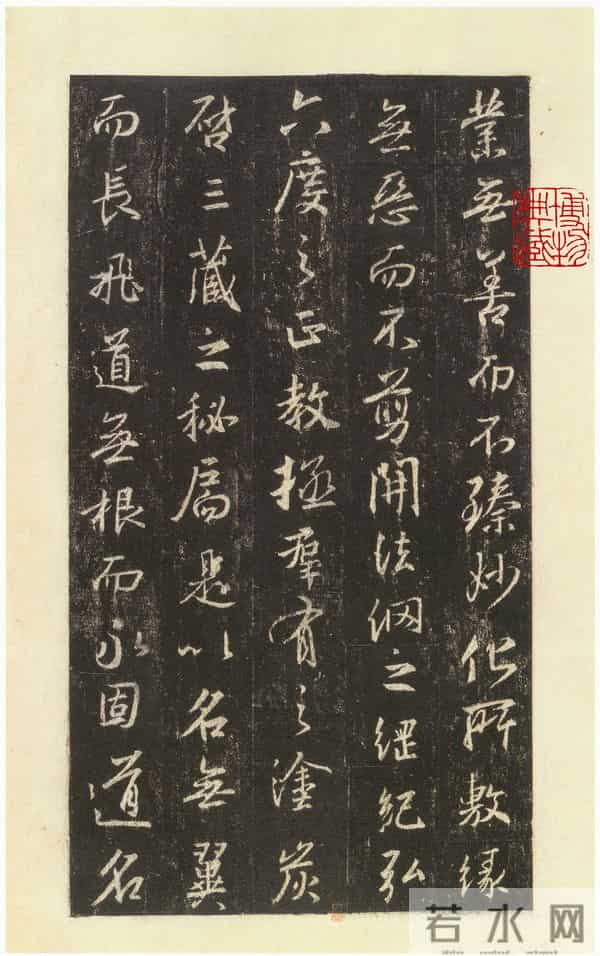 業無善而不臻妙化所敷緣
無惡而不剪開法網之綱紀弘
六度之正教拯群有之塗炭
啓三藏之秘扃是以名無翼
而長飛道無根而永固道名
若水网